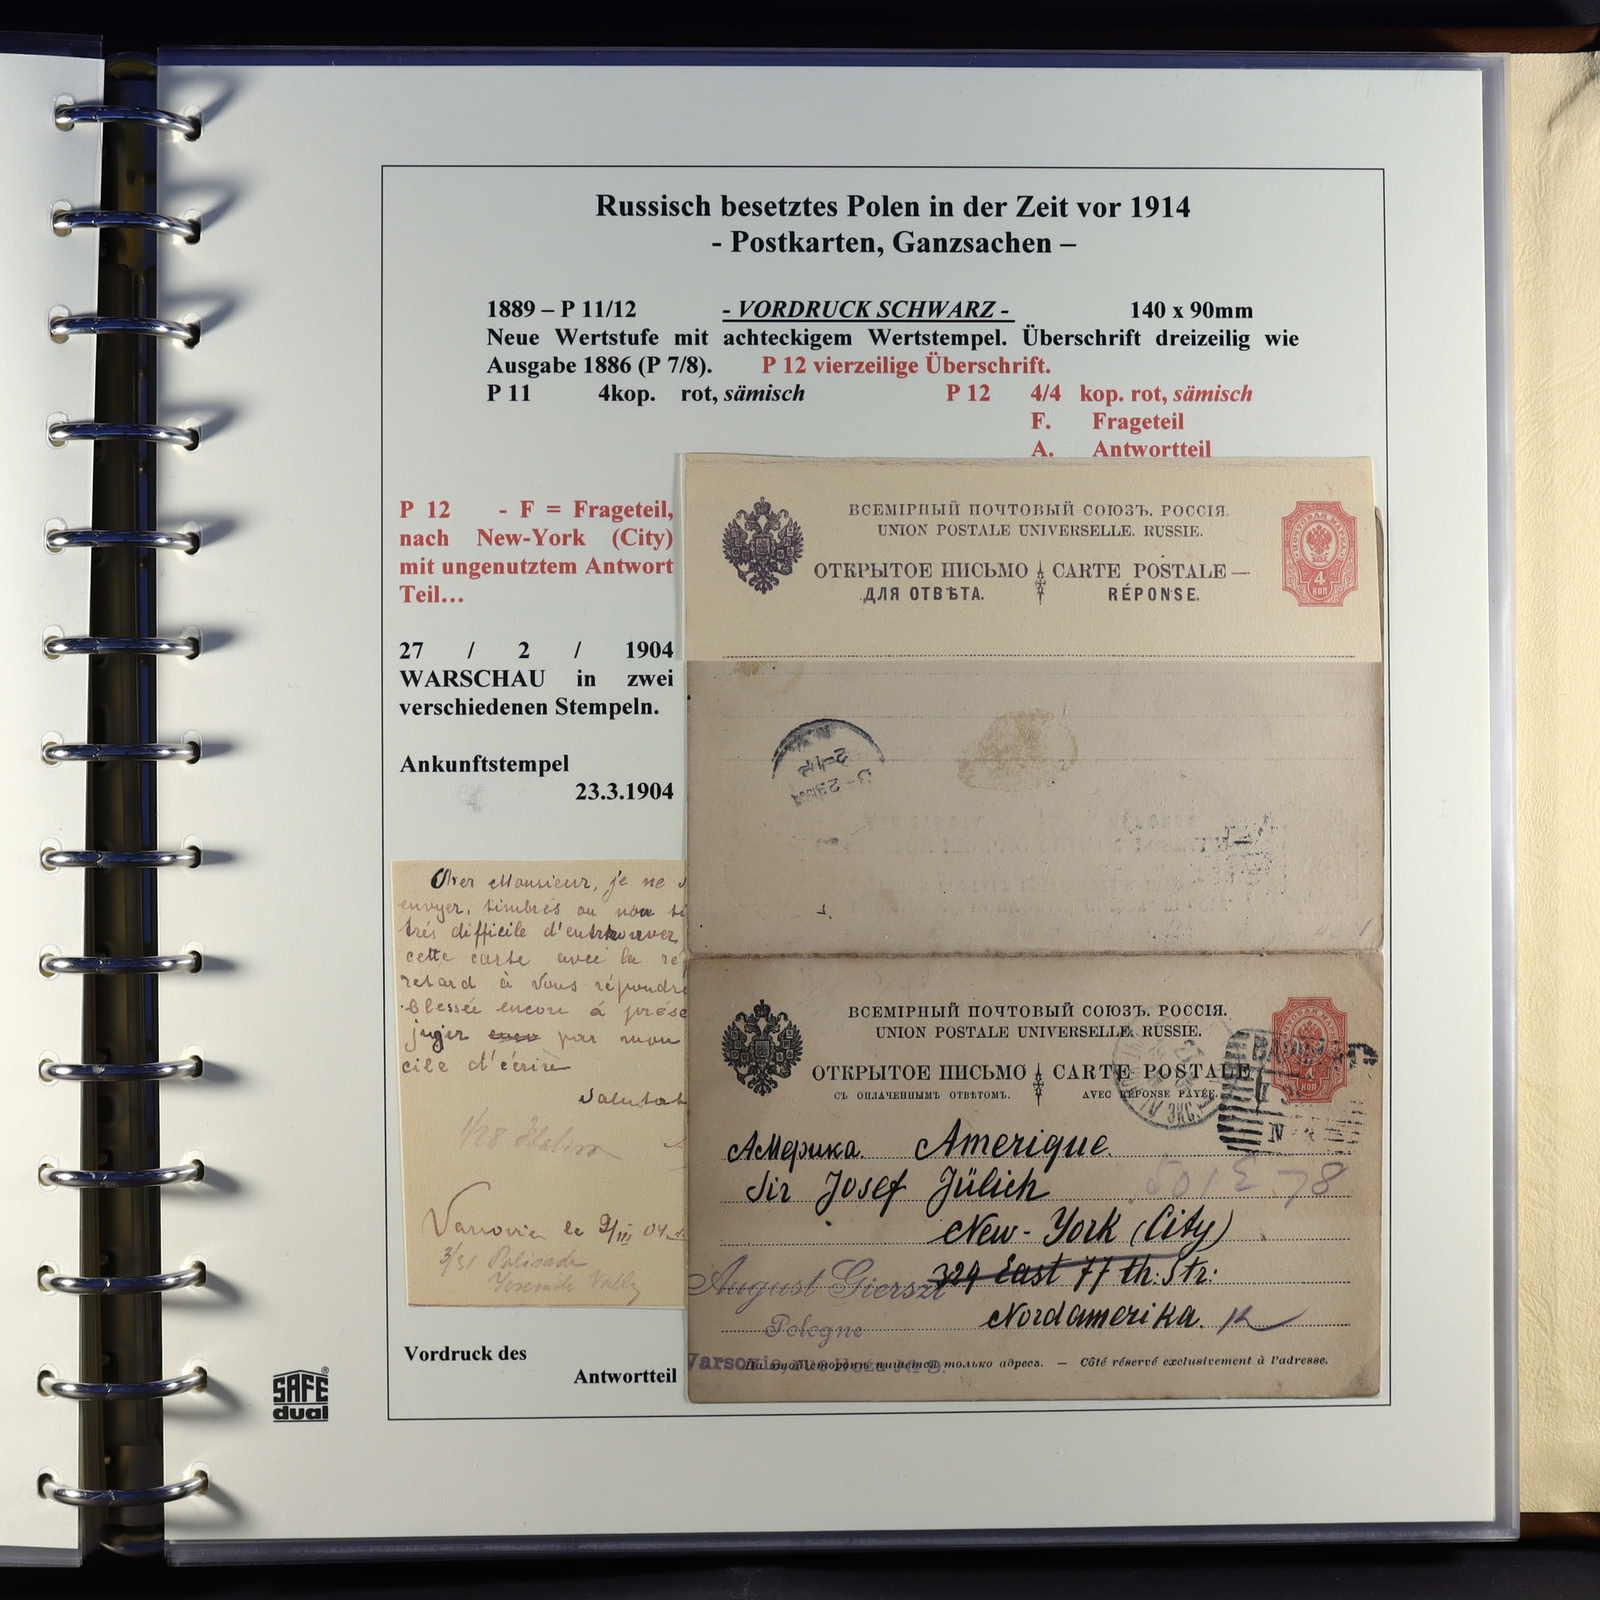 Russisch besetztes Polen in der Zeit vor 1914
- Postkarten, Ganzsachen –
1889 – P 11/12 - VORDRUCK SCHWARZ - 140 x 90mm
Neue Wertstufe mit achteckigem Wertstempel. Überschrift dreizeilig wie
Ausgabe 1886 (P 7/8). P 12 vierzeilige Überschrift.
P 11 4kop. rot, sämisch P 12 4/4 kop. rot, sämisch
F. Frageteil
A. Antwortteil
P 12 - F = Frageteil,
nach New-York (City)
mit ungenutztem Antwort
Teil…
27 / 2 / 1904
WARSCHAU in zwei
verschiedenen Stempeln.
Ankunftstempel
23.3.1904
ВСЕМІРНЫЙ ПОЧТОВЫЙ СОЮЗЪ. РОССІЯ.
UNION POSTALE UNIVERSELLE. RUSSIE.
ОТКРЫТОЕ ПИСЬМО CARTE POSTALE
ДЛЯ ОТВѢТА. RÉPONSE.
ПОЧТОВАЯ МАРКА
4
КОП
Cher Monsieur, je ne
envoyer, timbres ou non
très difficile d'entrouver
cette carte avec la ré
retard à vous répondre
blessée encore à prése
juger par mon
cile d'écrire
Varsovie le 9/III 04
Vordruck des
Antwortteil
ВСЕМІРНЫЙ ПОЧТОВЫЙ СОЮЗЪ. РОССІЯ.
UNION POSTALE UNIVERSELLE. RUSSIE.
ОТКРЫТОЕ ПИСЬМО CARTE POSTALE
СЪ ОПЛАЧЕННЫМЪ ОТВѢТОМЪ. AVEC RÉPONSE PAYÉE.
Америка. Amerique.
Sir Josef Jülich
New-York (City)
329 East 77 th. Str.
Nordamerika.
August Gierszt
Pologne
Varsovie,
На этой сторонѣ пишется только адресъ. — Côté réservé exclusivement à l'adresse.
SAFE®
dual